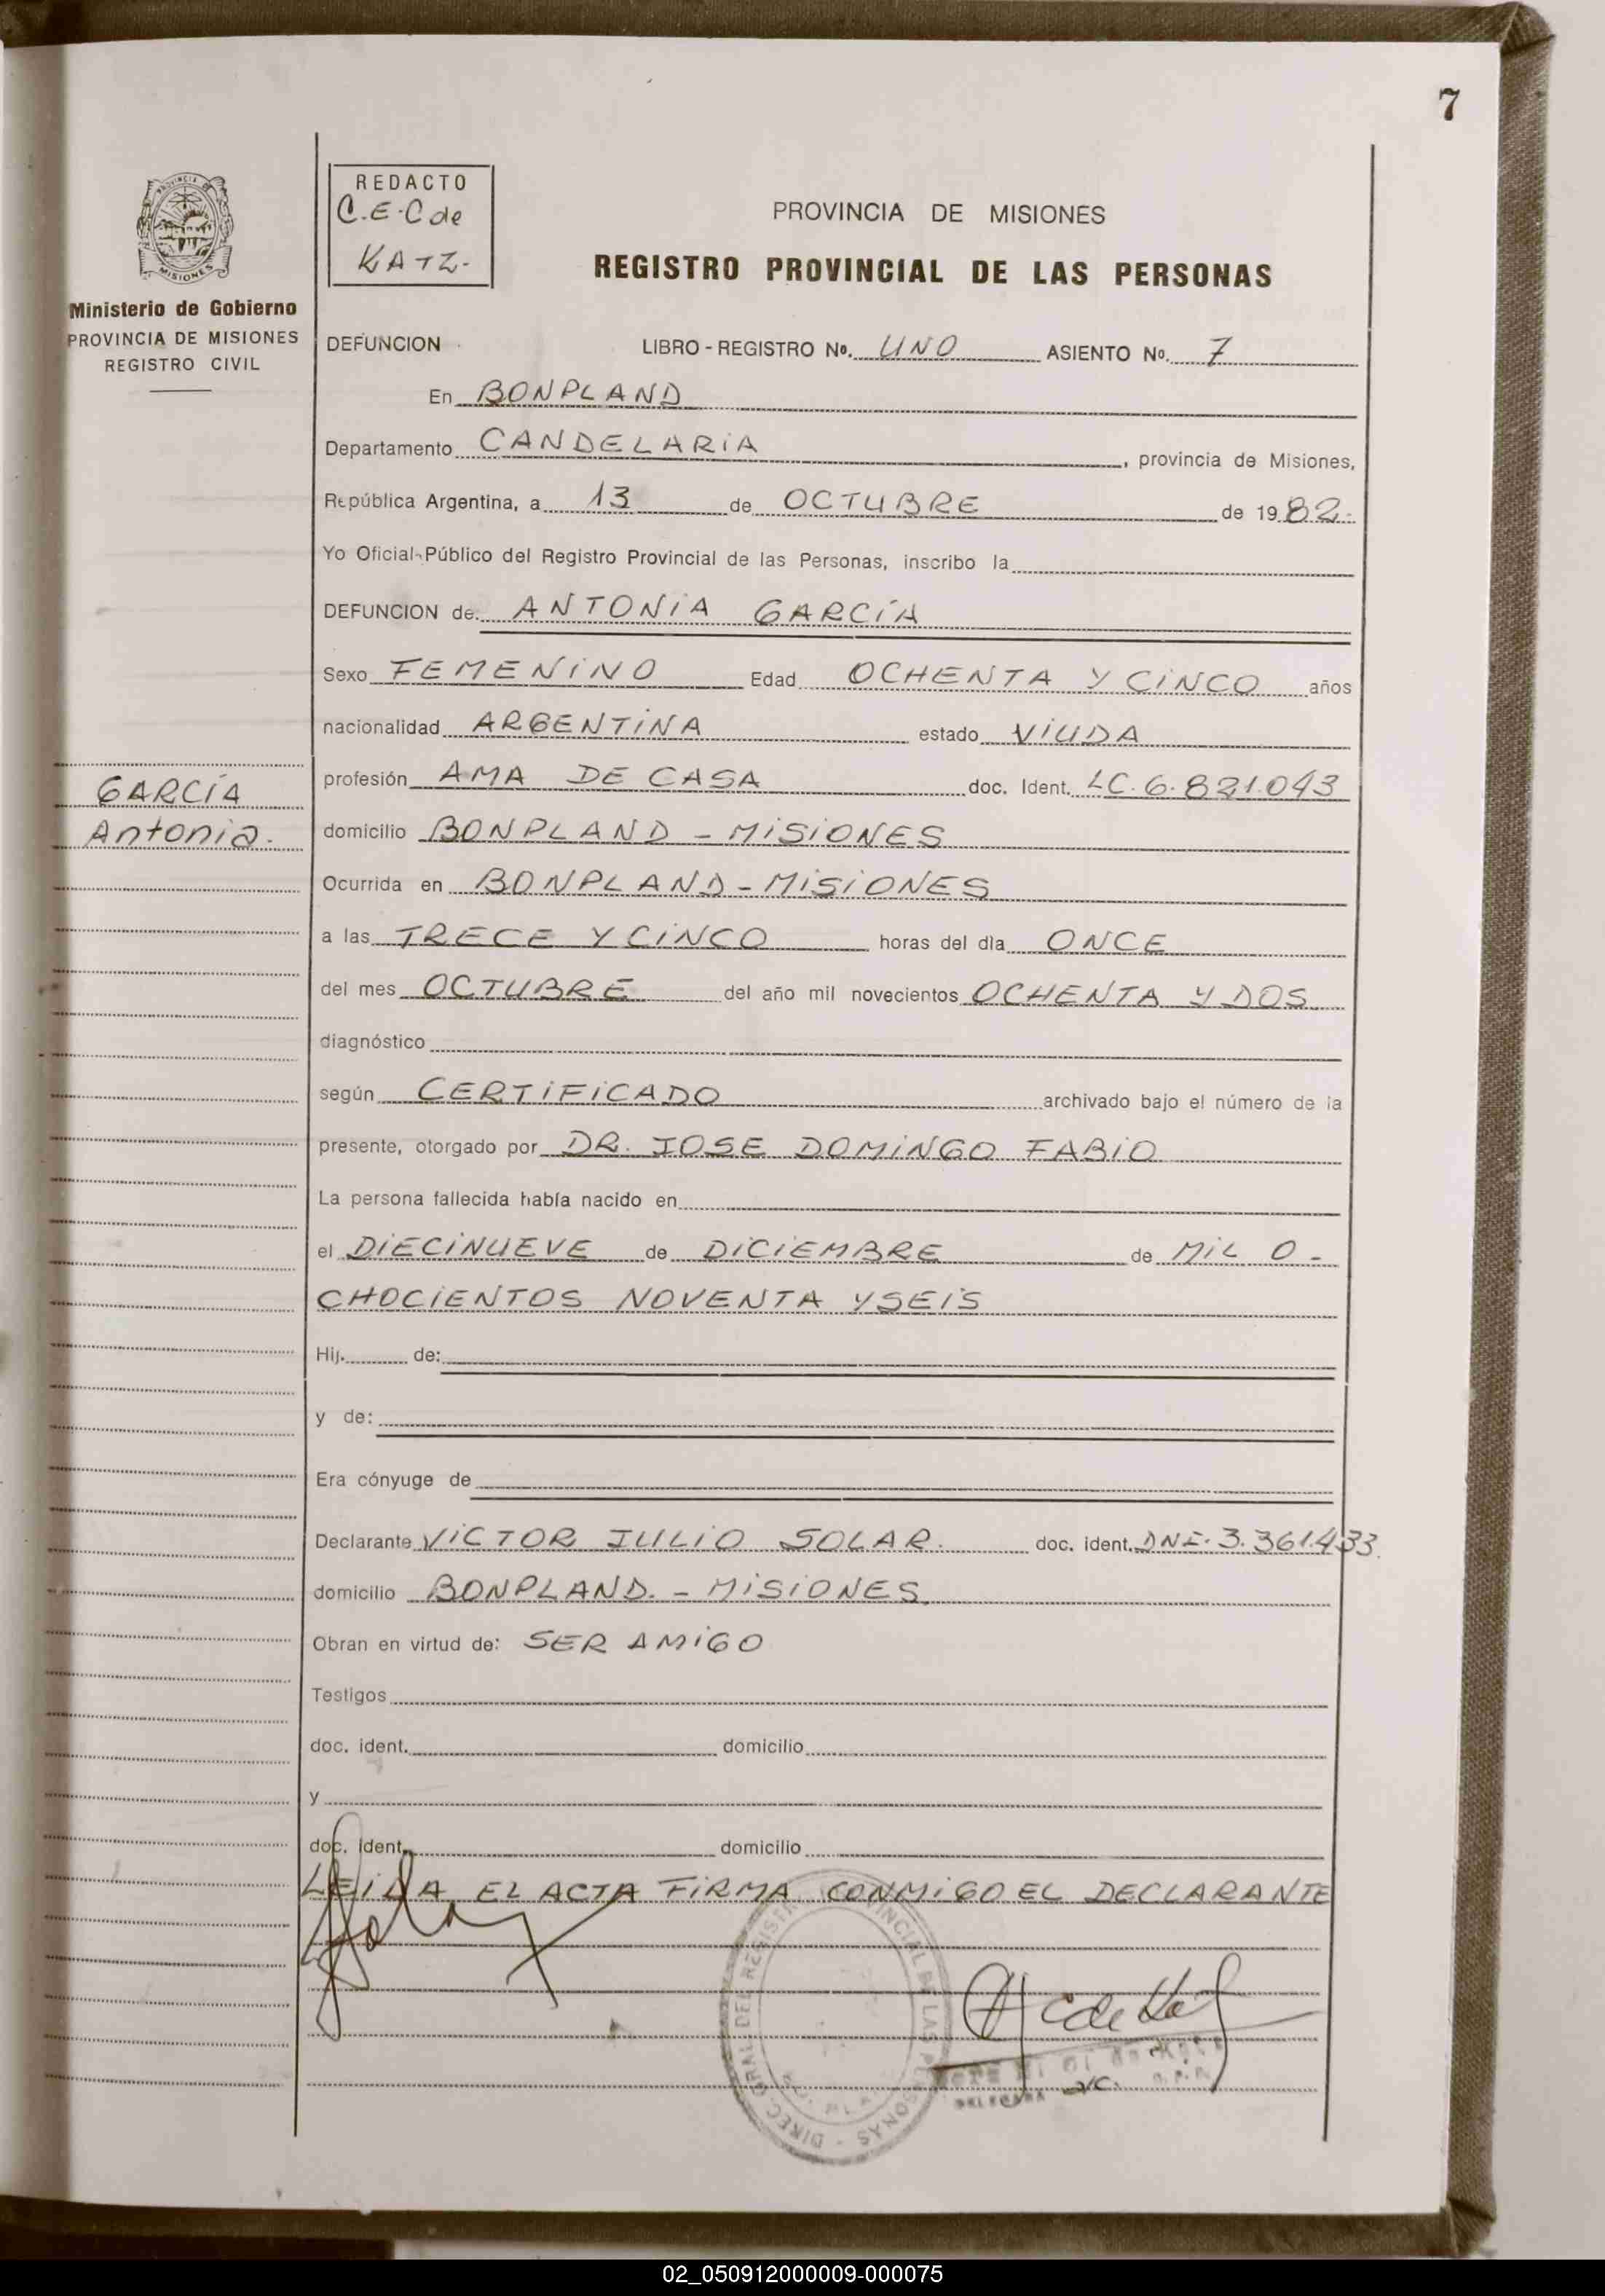 7
REDACTO
C.E.C de
KATZ.-
PROVINCIA DE MISIONES
REGISTRO PROVINCIAL DE LAS PERSONAS
MISIONES
Ministerio de Gobierno
PROVINCIA DE MISIONES
REGISTRO CIVIL
DEFUNCION LIBRO - REGISTRO Nº. UNO ASIENTO Nº. 7
En BONPLAND
Departamento CANDELARIA, provincia de Misiones,
República Argentina, a 13 de OCTUBRE de 1982.-
Yo Oficial Público del Registro Provincial de las Personas, inscribo la
DEFUNCION de: ANTONIA GARCÍA
Sexo FEMENINO Edad OCHENTA Y CINCO años
nacionalidad ARGENTINA estado VIUDA
profesión AMA DE CASA doc. Ident. LC.6.821.043
GARCÍA
Antonia.
domicilio BONPLAND - MISIONES
Ocurrida en BONPLAND - MISIONES
a las TRECE Y CINCO horas del día ONCE
del mes OCTUBRE del año mil novecientos OCHENTA Y DOS
diagnóstico
según CERTIFICADO archivado bajo el número de la
presente, otorgado por DR. JOSE DOMINGO FABIO
La persona fallecida había nacido en
el DIECINUEVE de DICIEMBRE de MIL O-
CHOCIENTOS NOVENTA Y SEIS
Hij. de:
y de:
Era cónyuge de
Declarante VICTOR JULIO SOLAR. doc. ident. DNI. 3.361.433.
domicilio BONPLAND. - MISIONES.
Obran en virtud de: SER AMIGO
Testigos
doc. ident. domicilio
y
doc. ident. domicilio
LEIDA EL ACTA FIRMA CONMIGO EL DECLARANTE
C de Katz
DIREC. GRAL. DEL REGISTRO PROVINCIAL DE LAS PERSONAS
02_050912000009-000075